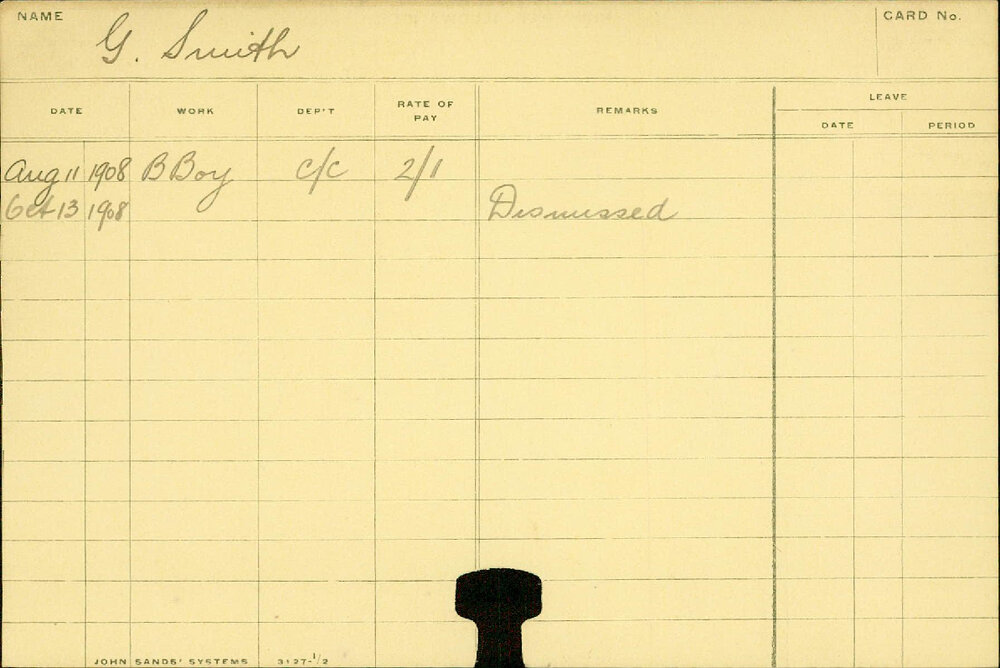 NAME G. Smith CARD No.
DATE WORK DEP'T RATE OF PAY REMARKS LEAVE
DATE PERIOD
Aug 11 1908 B Boy C/C 2/1
Oct 13 1908 Dismissed
JOHN SANDS' SYSTEMS 3127-1/2